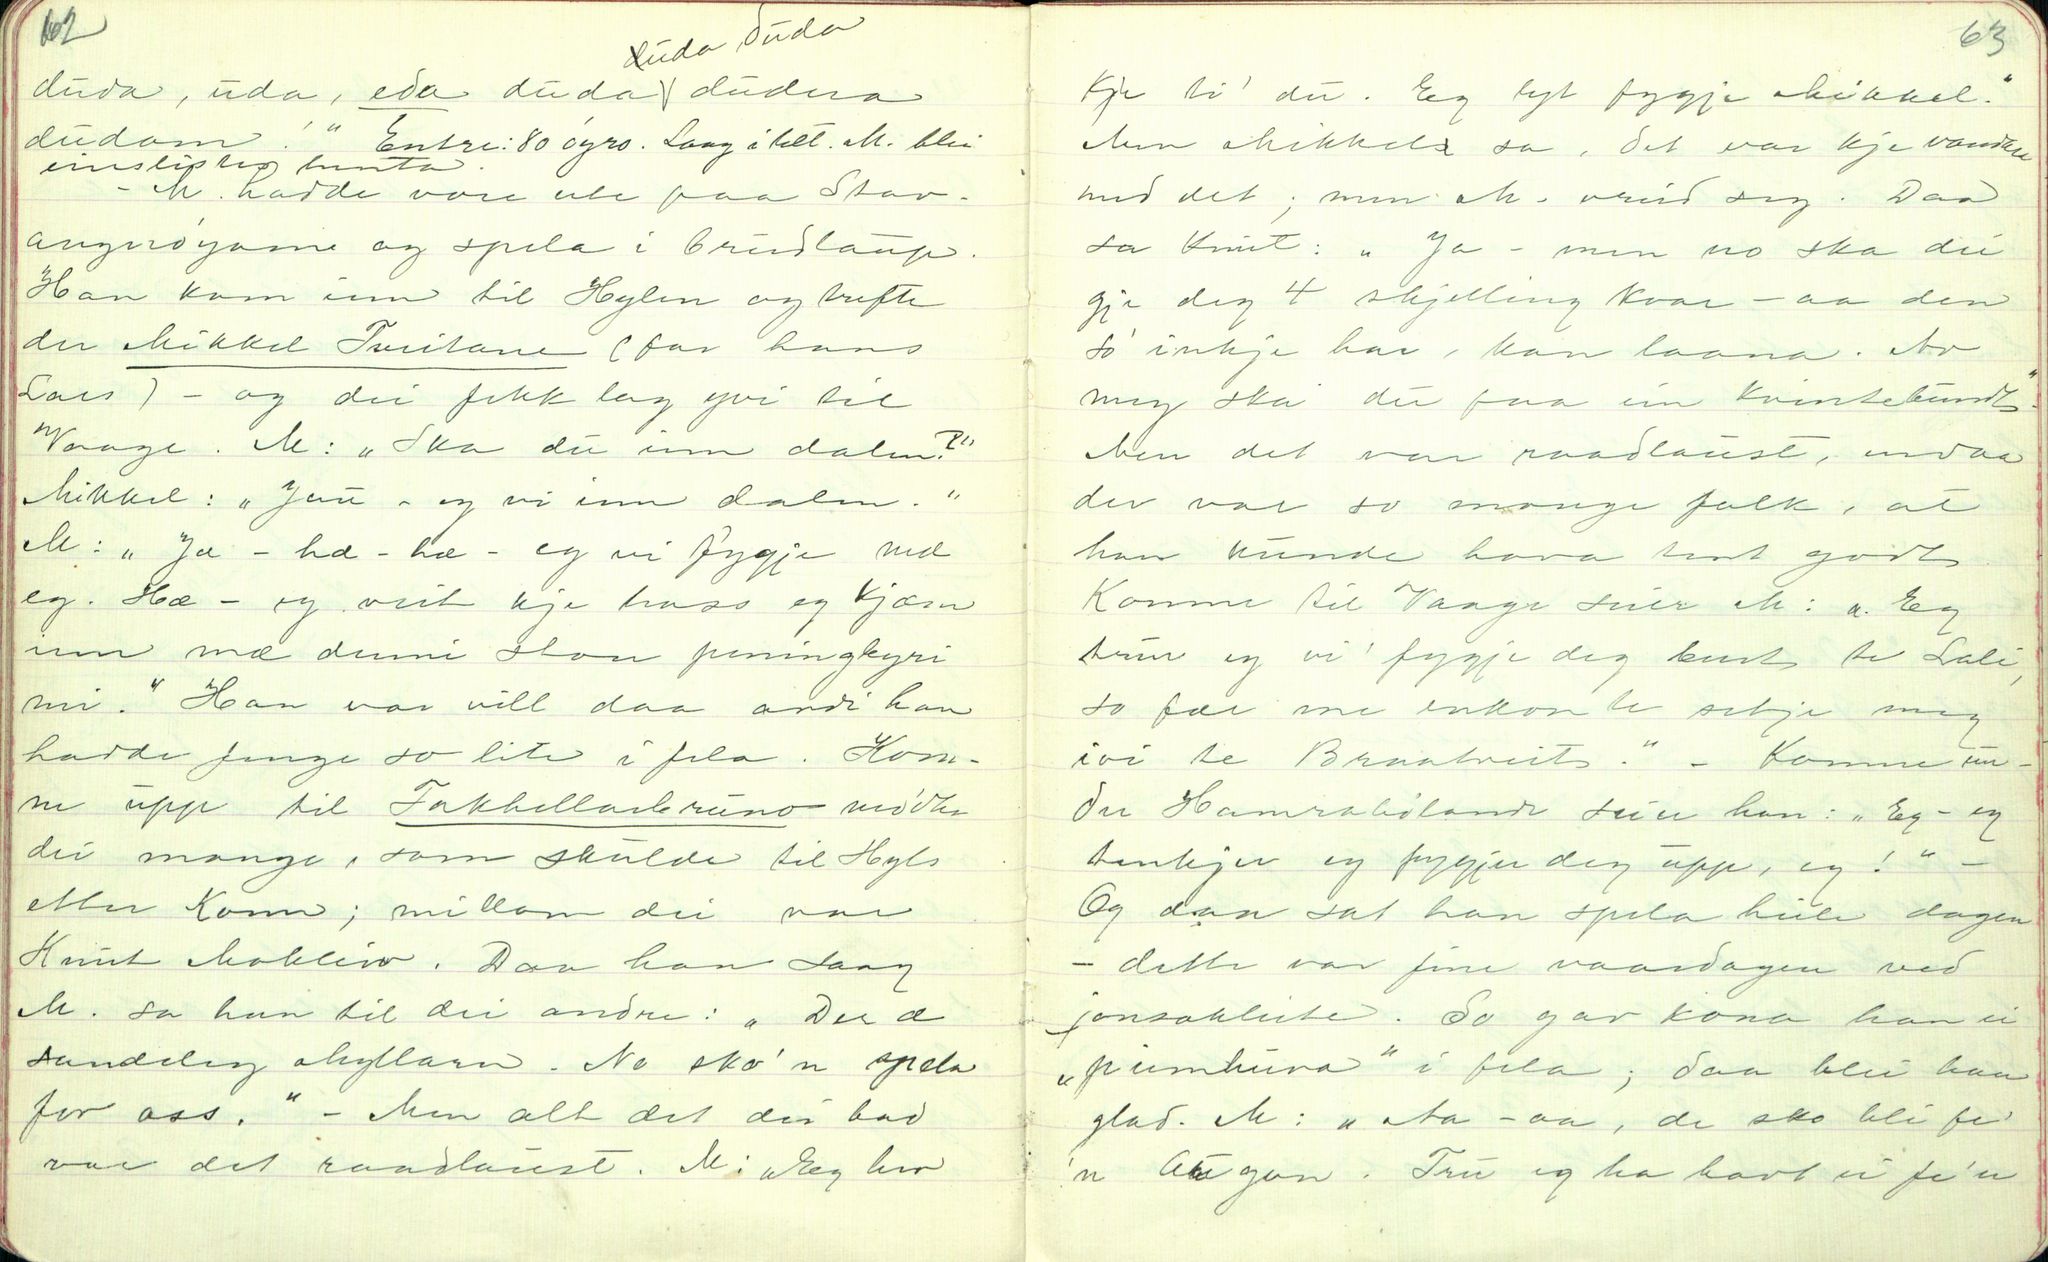 62
duda duda
duda, uda, eda duda dudera
dudam!" Entre: 80 öyro. Laag i telt. M. blei
einslistig henta.
- M. hadde vore ute paa Stav-
angeröyane og spela i brudlaup.
Han kom inn til Hylen og trefte
der Mikkel Tveitane (far hans
Lars) - og dei fekk lag yvi til
Vaage. M: „Ska du inn dalen?"
Mikkel: „Jau - eg vi inn dalen."
M: „Ja - hæ - hæ - eg vi fygje med
eg. Hæ - eg veit kje hoss eg kjæm
inn mæ denni stau peningkyri
mi." Han var vill daa andi han
hadde fenge so lite i fela. Kom-
ne upp til Fakkellarbruno mödte
dei mange, som skulde til Hyls
etter Korn; millom dei var
Knut Mokleiv. Daa han saag
M. sa han til dei andre: „Der æ
sandeleg Myllarn. No sko'n spela
for oss." - Men alt det dei bad
var det raadlaust. M: „Eg hev
63
kje ti' du. Eg lyt fygje Mikkel."
Men Mikkel sa, det var kje vandare
med det; men M. vreid seg. Daa
sa Knut: „Ja - men no ska dei
gje deg 4 skjelling kvar - aa den
so' inkje har, kan laana. Av
meg ska du faa ein kvintebundt."
Men det var raadlaust, endaa
der var so mange folk, at
han kunde hava tent godt.
Komne til Vaage seier M: „Eg
trur eg vi' fygje deg burt te Lali,
so fær me enkon te setje meg
ivi te Braatveit." - Komne un-
der Hamrabölande seier han: „Eg - eg
tenkjer eg fygjer deg upp, eg!" -
Og daa sat han spela heile dagen
- dette var fine vaardagen ved
jonsokleite. So gav kona han ei
„pumhuva" i fela; daa blei han
glad. M: „Aa - aa, de sko bli fe'
'n Augon. Tru eg ha havt ei fe'n